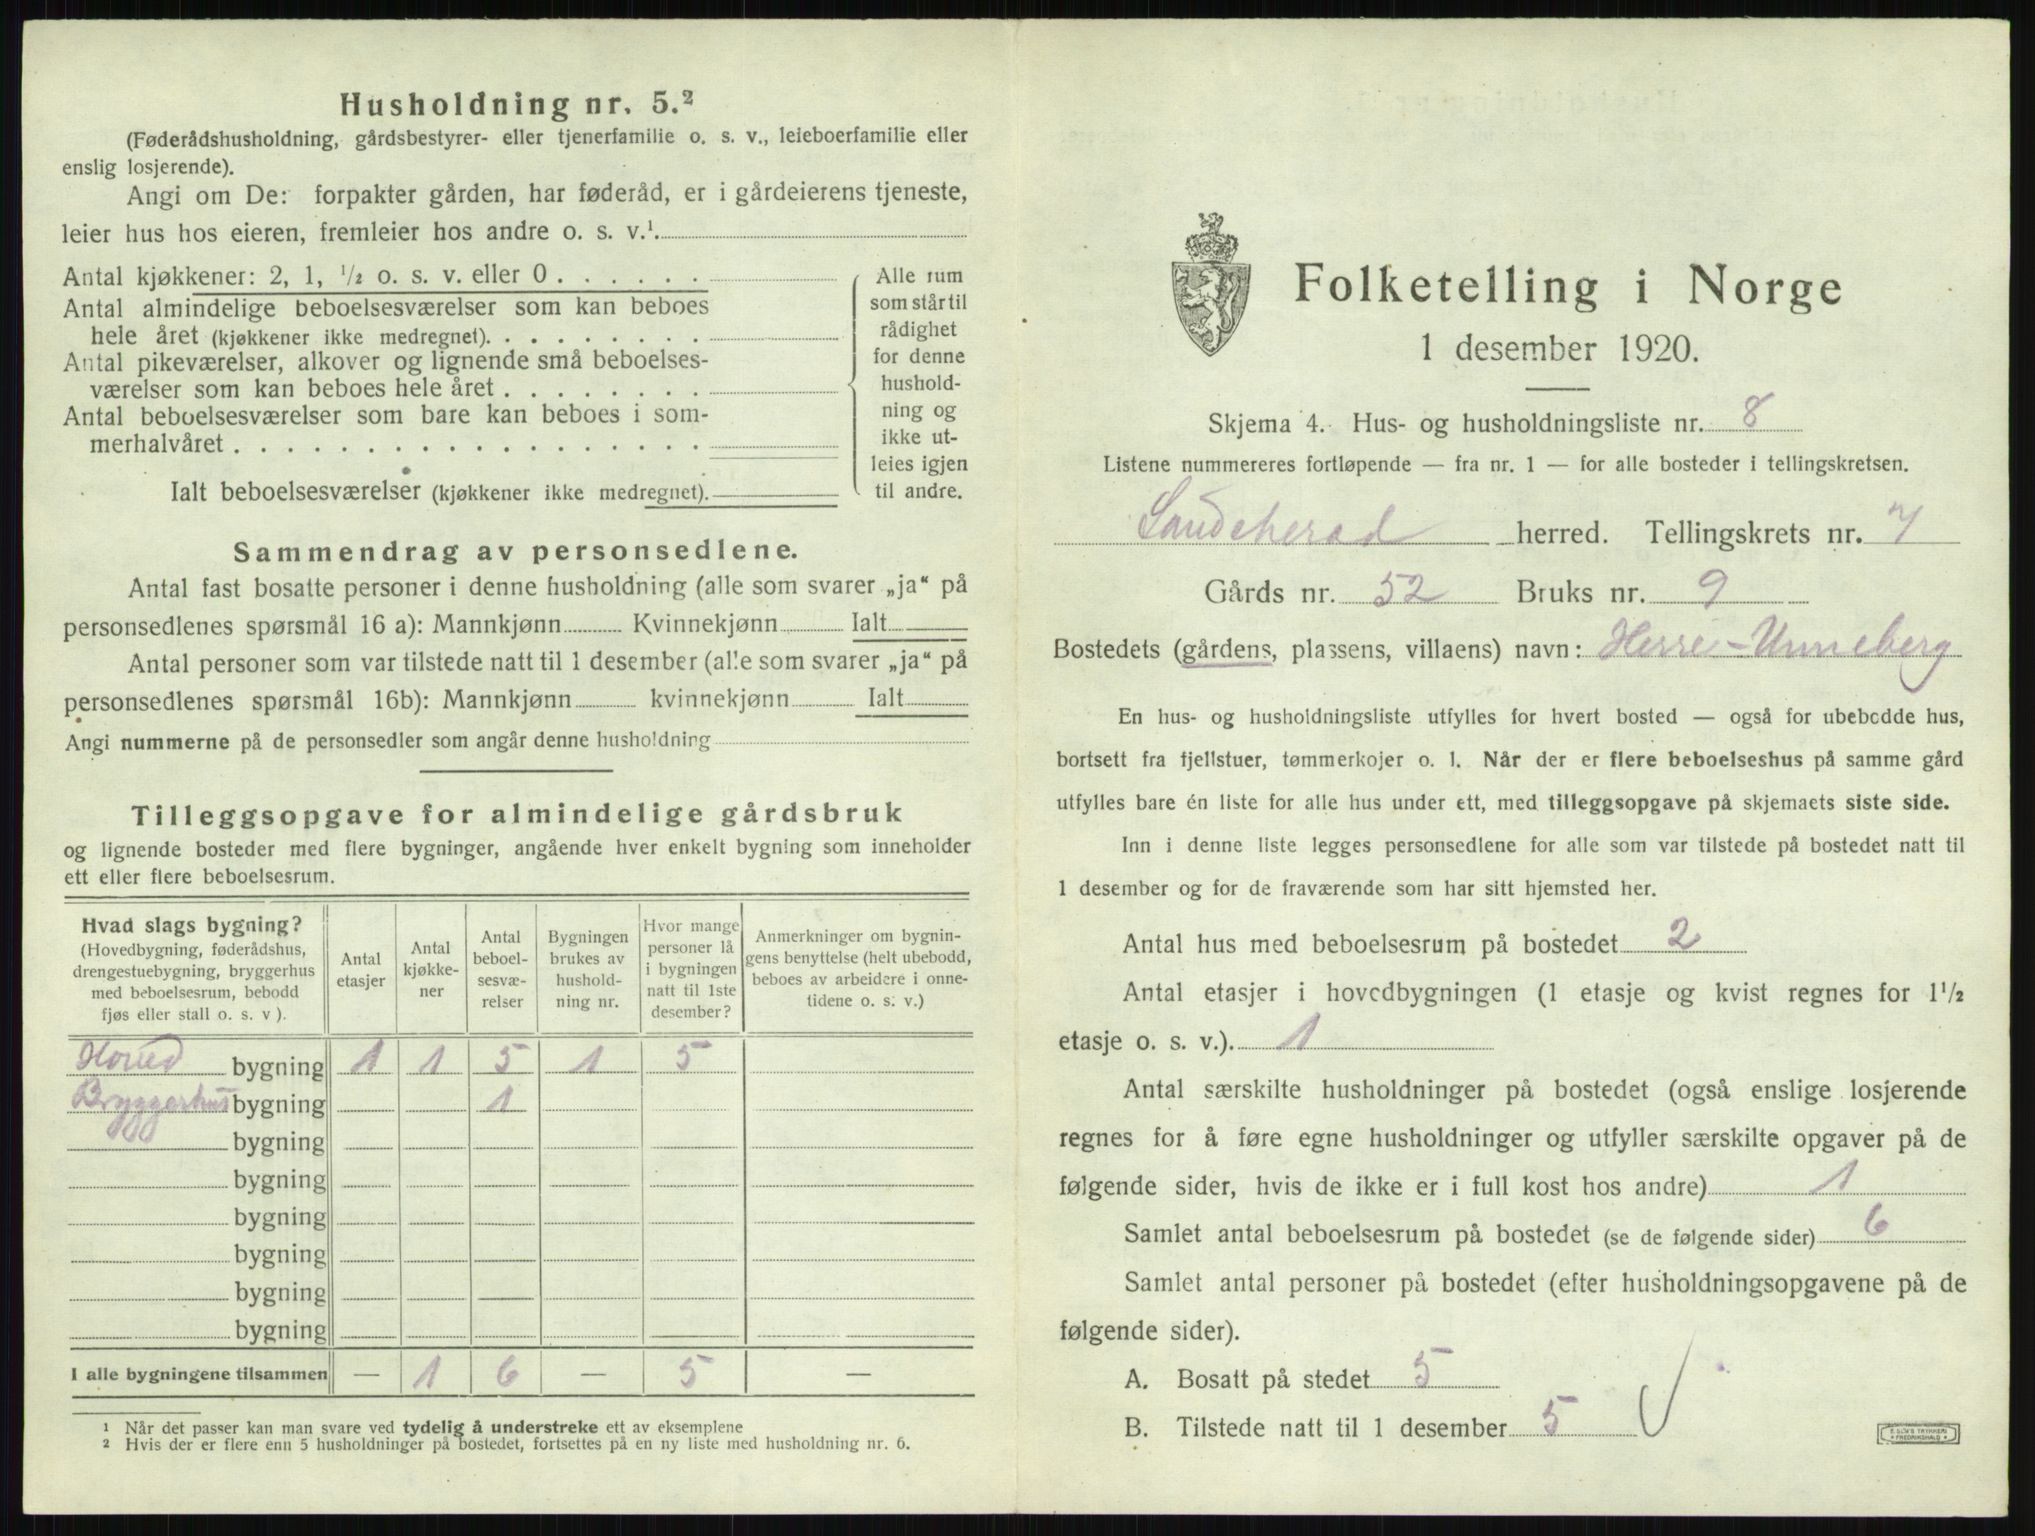 Husholdning nr. 5.²
(Føderådshusholdning, gårdsbestyrer- eller tjenerfamilie o. s. v., leieboerfamilie eller
enslig losjerende).
Angi om De: forpakter gården, har føderåd, er i gårdeierens tjeneste,
leier hus hos eieren, fremleier hos andre o. s. v.¹
Antal kjøkkener: 2, 1, ½ o. s. v. eller 0 . . . . . .
Antal almindelige beboelsesværelser som kan beboes
hele året (kjøkkener ikke medregnet). . . . . . . . .
Antal pikeværelser, alkover og lignende små beboelses-
værelser som kan beboes hele året . . . . . . . .
Antal beboelsesværelser som bare kan beboes i som-
merhalvåret . . . . . . . . . . . . . . . . . .
Ialt beboelsesværelser (kjøkkener ikke medregnet).
Alle rum
som står til
rådighet
for denne
hushold-
ning og
ikke ut-
leies igjen
til andre.
Sammendrag av personsedlene.
Antal fast bosatte personer i denne husholdning (alle som svarer „ja“ på
personsedlenes spørsmål 16 a): Mannkjønn Kvinnekjønn Ialt
Antal personer som var tilstede natt til 1 desember (alle som svarer „ja“ på
personsedlenes spørsmål 16b): Mannkjønn kvinnekjønn Ialt
Angi nummerne på de personsedler som angår denne husholdning
Tilleggsopgave for almindelige gårdsbruk
og lignende bosteder med flere bygninger, angående hver enkelt bygning som inneholder
ett eller flere beboelsesrum.
Hvad slags bygning?
(Hovedbygning, føderådshus,
drengestuebygning, bryggerhus
med beboelsesrum, bebodd
fjøs eller stall o. s. v ).
Antal
etasjer
Antal
kjøkke-
ner
Antal
beboel-
sesvæ-
relser
Bygningen
brukes av
hushold-
ning nr.
Hvor mange
personer lå
i bygningen
natt til 1ste
desember?
Anmerkninger om bygnin-
gens benyttelse (helt ubebodd,
beboes av arbeidere i onne-
tidene o. s. v.)
Hoved bygning 1 1 5 1 5
Bryggerhus bygning 1
bygning
bygning
bygning
bygning
bygning
bygning
I alle bygningene tilsammen — 1 6 — 5 —
¹ Når det passer kan man svare ved tydelig å understreke ett av eksemplene
² Hvis der er flere enn 5 husholdninger på bostedet, fortsettes på en ny liste med husholdning nr. 6.
Folketelling i Norge
1 desember 1920.
Skjema 4. Hus- og husholdningsliste nr. 8
Listene nummereres fortløpende — fra nr. 1 — for alle bosteder i tellingskretsen.
Sandeherad herred. Tellingskrets nr. 7
Gårds nr. 52 Bruks nr. 9
Bostedets (gårdens, plassens, villaens) navn: Herre-Unneberg
En hus- og husholdningsliste utfylles for hvert bosted — også for ubebodde hus,
bortsett fra fjellstuer, tømmerkojer o. l. Når der er flere beboelseshus på samme gård
utfylles bare én liste for alle hus under ett, med tilleggsopgave på skjemaets siste side.
Inn i denne liste legges personsedlene for alle som var tilstede på bostedet natt til
1 desember og for de fraværende som har sitt hjemsted her.
Antal hus med beboelsesrum på bostedet 2
Antal etasjer i hovedbygningen (1 etasje og kvist regnes for 1½
etasje o. s. v.). 1
Antal særskilte husholdninger på bostedet (også enslige losjerende
regnes for å føre egne husholdninger og utfyller særskilte opgaver på de
følgende sider, hvis de ikke er i full kost hos andre) 1
Samlet antal beboelsesrum på bostedet (se de følgende sider) 6
Samlet antal personer på bostedet (efter husholdningsopgavene på de
følgende sider).
A. Bosatt på stedet 5
B. Tilstede natt til 1 desember 5